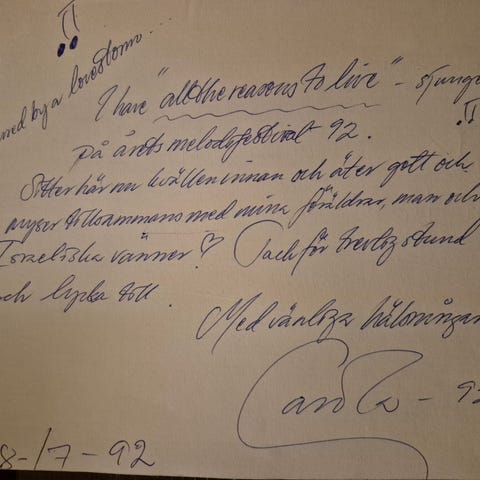 !!
ned by a lovestorm...
I have "all the reasons to live" - sjunger
på årets melodifestival 92. !!
Sitter här nu kvällen innan och äter gott och
myser tillsammans med mina föräldrar, man och
Israeliska vänner ♡ Tack för trevlig stund
och lycka till.
Med vänliga hälsningar
Carola - 92
8-/7-92